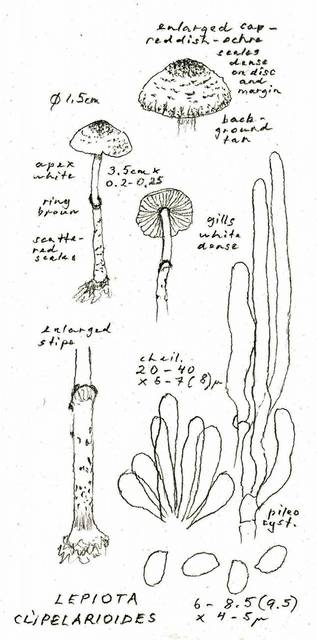 enlarged cap-
reddish-ochre
scales
dense
on disc
and
margin
back-
ground
tan
Ø 1,5cm
apex
white
3.5cm x
0.2-0,25
ring
brown
scatte-
red
scales
gills
white
dense
enlarged
stipe
cheil.
20-40
x 6-7(8)µ
pileo
cyst.
LEPIOTA
CLIPELARIOIDES
6-8.5(9.5)
x 4-5µ